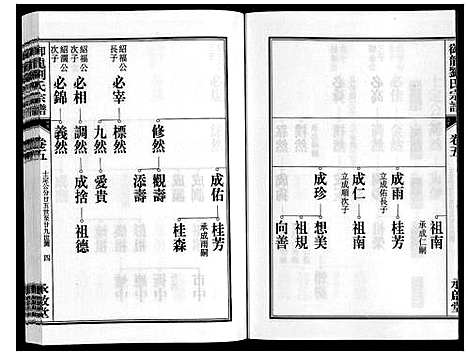 御龍劉氏宗譜
卷五
承啟堂
祖南
承成仁嗣
成雨
桂芳
立成佑長子
成仁
祖南
立成順次子
成珍
想美
祖規
向善
成佑
桂芳
承成雨嗣
桂森
修然
觀壽
添壽
紹福公
長子
必宰
標然
九然
愛貴
紹福公
次子
必相
調然
成捨
祖德
紹瀾公
次子
必錦
義然
御龍劉氏宗譜
卷五
四
承啟堂